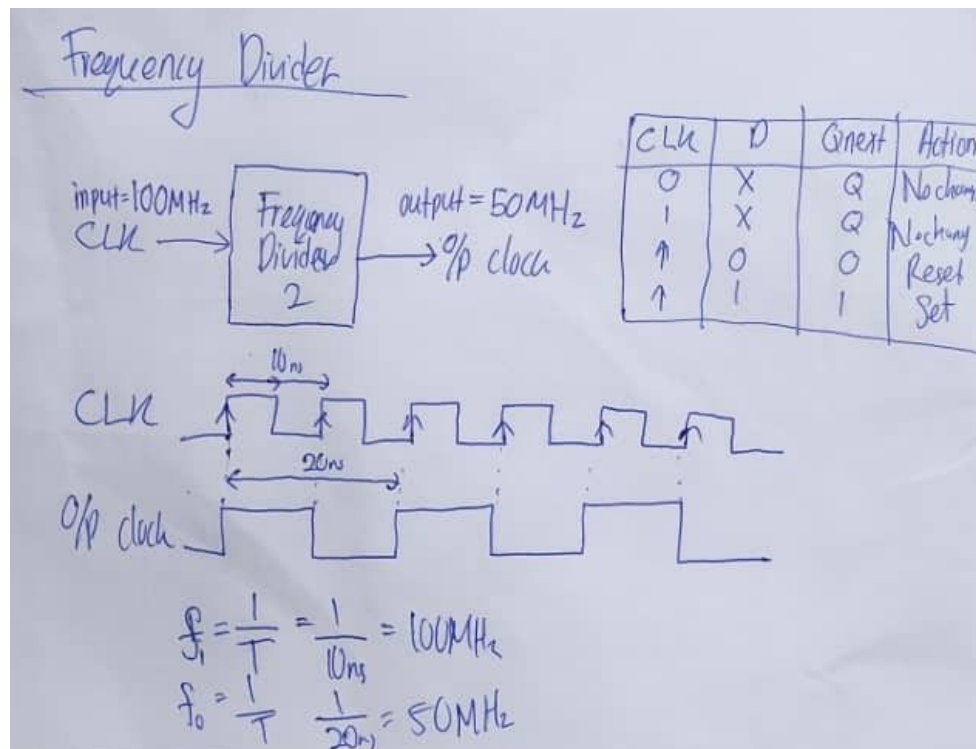 Frequency Divider
input=100MHz
CLK
Frequency
Divider
2
output=50MHz
O/P clock
CLK D Qnext Action
0 X Q No chang
1 X Q No chang
↑ 0 0 Reset
↑ 1 1 Set
10ns
CLK
20ns
O/P clock
f₁ = 1/T = 1/10ns = 100MHz
f₀ = 1/T 1/20ns = 50MHz